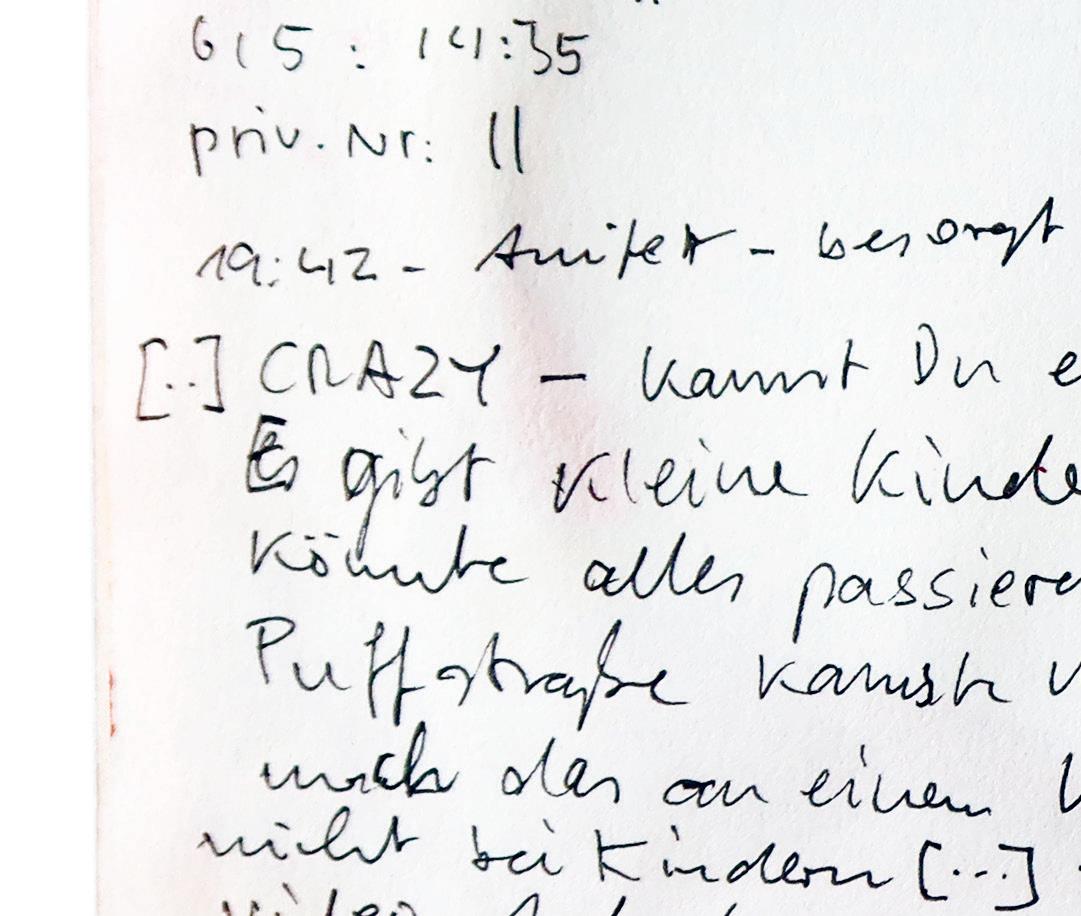 615 : 14:35
priv. Nr: 11
19:42 - - besorgt
[..] CRAZY - kannst Du e
Es gibt kleine Kinde
könnte alles passiere
Puffstraße kannste
mach das an einem
nicht bei Kindern [...]